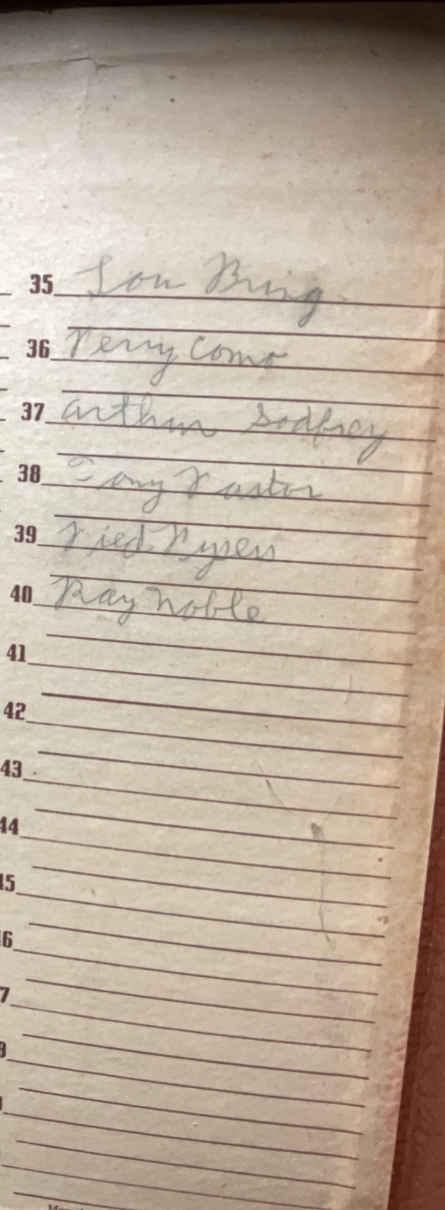 35 Lou Bring
36 Perry Como
37 Arthur Godfrey
38 Tony Pastor
39
40 Ray Noble
41
42
43
44